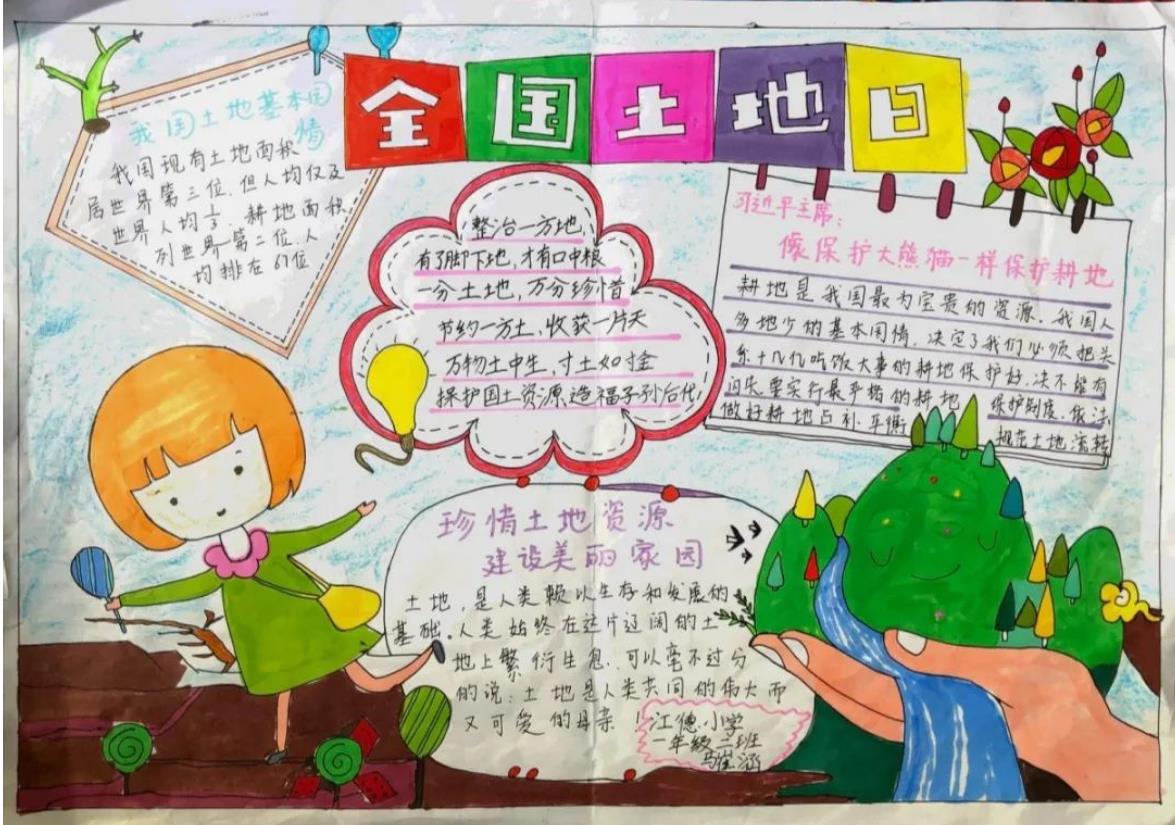 全国土地日
我国土地基本国
情
我国现有土地面积
居世界第三位.但人均仅及
世界人均⅓.耕地面积
列世界第二位.人
均排在67位
整治一方地,
有了脚下地,才有口中粮
一分土地,万分珍惜
节约一方土,收获一片天
万物土中生,寸土如寸金
保护国土资源,造福子孙后代
习近平主席:
像保护大熊猫一样保护耕地
耕地是我国最为宝贵的资源.我国人
多地少的基本国情.决定了我们必须把关
系十几亿吃饭大事的耕地保护好.决不能有
闪失.要实行最严格的耕地保护制度.依法
做好耕地占补平衡 规范土地流转
珍惜土地资源
建设美丽家园
土地,是人类赖以生存和发展的
基础.人类始终在这片辽阔的土
地上繁衍生息.可以毫不过分
的说:土地是人类共同的伟大而
又可爱的母亲!
江德小学
一年级二班